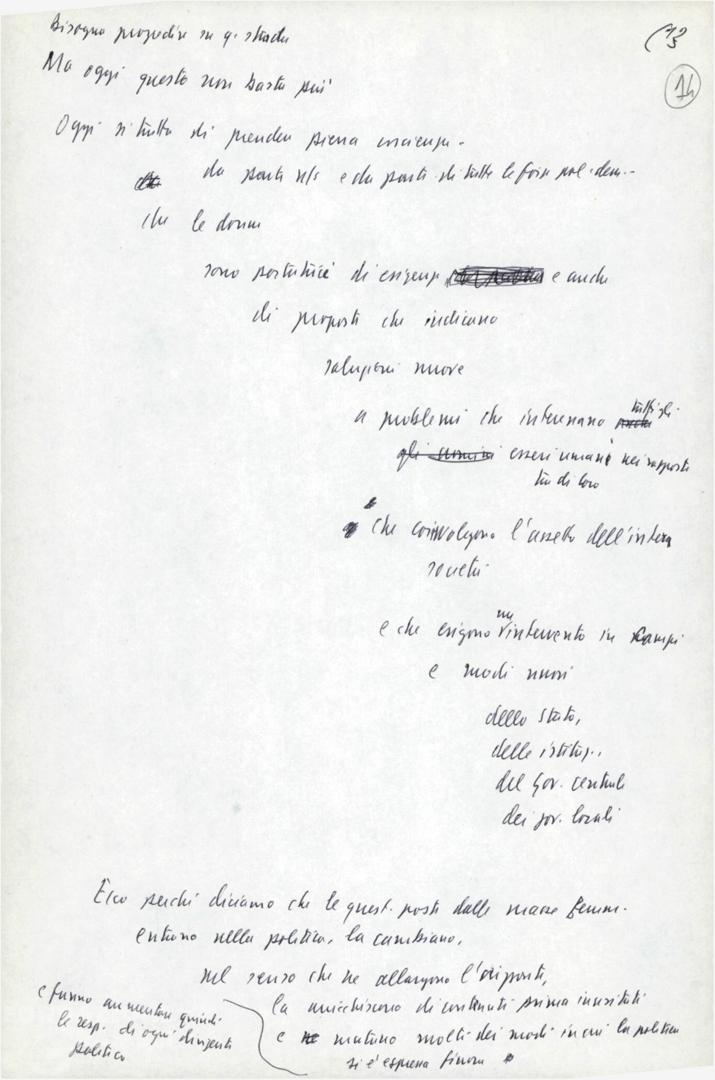 Bisogna proseguire su q. strada
13
14
Ma oggi questo non basta più
Oggi si tratta di prendere piena coscienza -
da parte n/s e da parte di tutte le forze pol. dem. -
che le donne
sono portatrici di esigenze e anche
di proposte che indicano
soluzioni nuove
a problemi che interessano tutti gli
gli uomini esseri umani nei rapporti
tra di loro
e che coinvolgono l'assetto dell'intera
società
e che esigono un intervento in campi
e modi nuovi
dello Stato,
delle istituz.,
del Gov. centrale
dei gov. locali
Ecco perché diciamo che le quest. poste dalle masse femm.
entrano nella politica, la cambiano,
nel senso che ne allargano l'orizzonte,
la arricchiscono di contenuti prima inusitati
e mutano molti dei modi in cui la politica
si è espressa finora
e fanno aumentare quindi
le resp. di ogni dirigente
politico